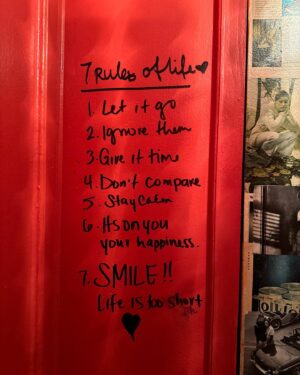 7 Rules of life ♥
1. Let it go
2. Ignore them
3. Give it time
4. Don't compare
5. Stay Calm
6. It's on you
your happiness.
7. SMILE!!
Life is too short